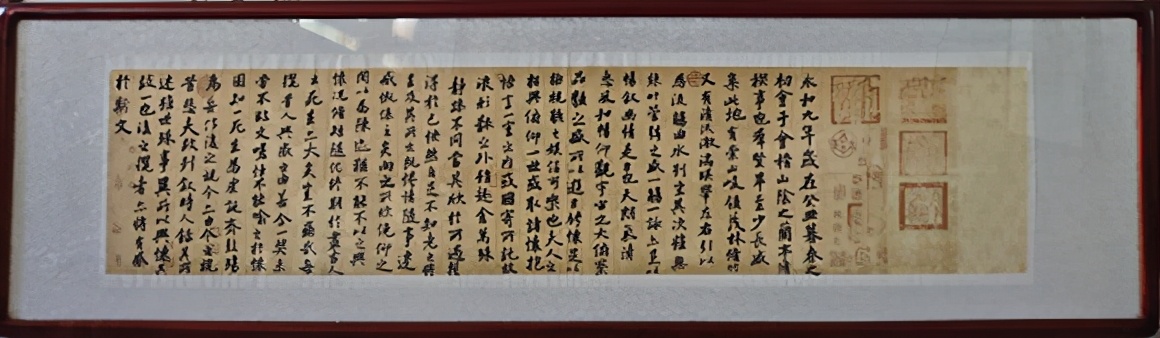 永和九年歲在癸丑暮春之
初會于會稽山陰之蘭亭脩
稧事也羣賢畢至少長咸
集此地有崇山峻領茂林脩竹
又有清流激湍暎帶左右引以
為流觴曲水列坐其次雖無
絲竹管弦之盛一觴一詠亦足以
暢敘幽情是日也天朗氣清
惠風和暢仰觀宇宙之大俯察
品類之盛所以遊目騁懷足以
極視聽之娛信可樂也夫人之
相與俯仰一世或取諸懷抱
悟言一室之內或因寄所託放
浪形骸之外雖趣舍萬殊
靜躁不同當其欣於所遇暫
得於己快然自足不知老之將
至及其所之既惓情隨事遷
感慨係之矣向之所欣俛仰之
間以為陳迹猶不能不以之興
懷況脩短隨化終期於盡古人
云死生亦大矣豈不痛哉每
攬昔人興感之由若合一契未
嘗不臨文嗟悼不能喻之於懷
固知一死生為虛誕齊彭殤
為妄作後之視今亦由今之視
昔悲夫故列敘時人錄其所
述雖世殊事異所以興懷其
致一也後之攬者亦將有感
於斯文